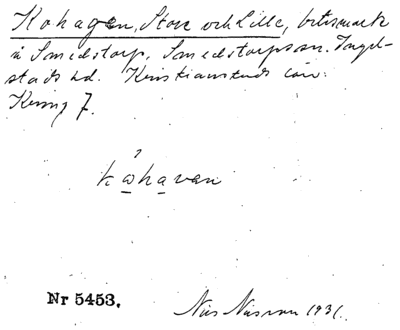 Kohagen, Store och Lille, betesmark
i Smedstorp, Smedstorps sn. Ingel-
stads hd. Kristianstads län.
Kring 7.
kohavan
Nr 5453.
Nils Nilsson 1931.